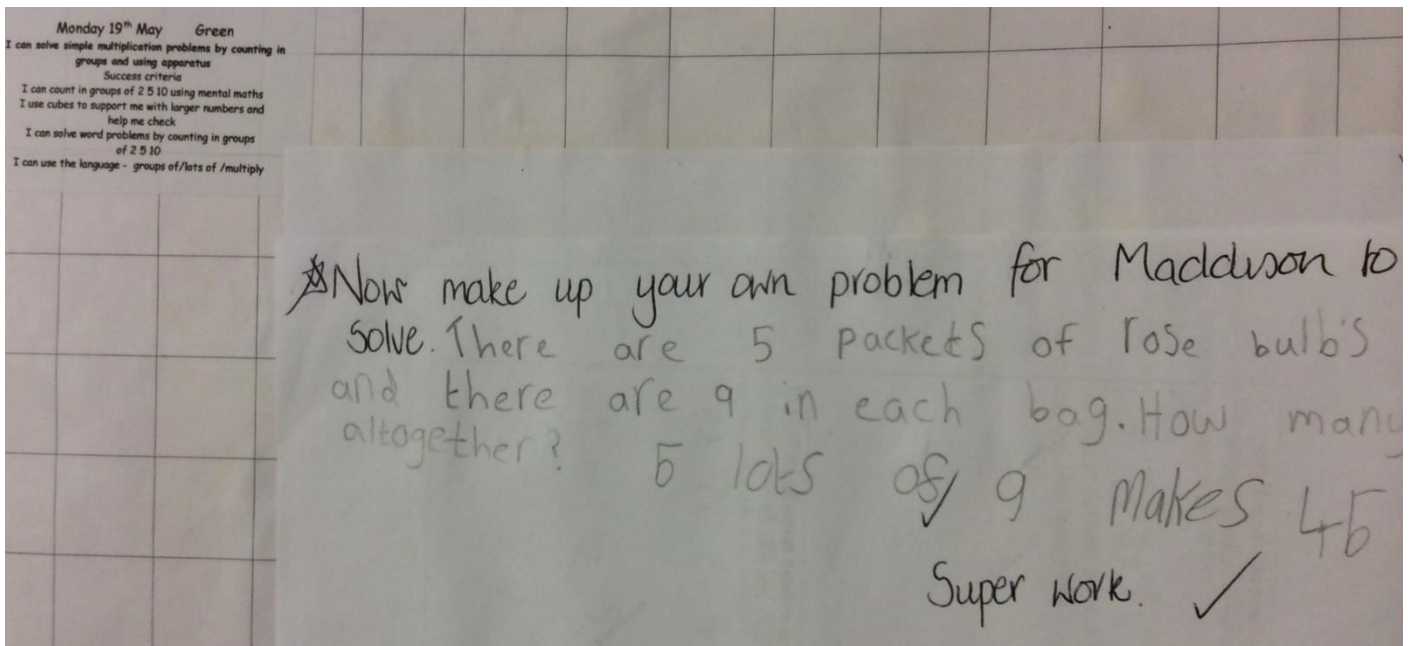 Monday 19th May Green
I can solve simple multiplication problems by counting in
groups and using apparatus
Success criteria
I can count in groups of 2 5 10 using mental maths
I use cubes to support me with larger numbers and
help me check
I can solve word problems by counting in groups
of 2 5 10
I can use the language - groups of/lots of /multiply
Now make up your own problem for Maddison to
solve. There are 5 packets of rose bulb's
and there are 9 in each bag. How many
altogether? 5 lots of 9 makes 45
Super work. ✓